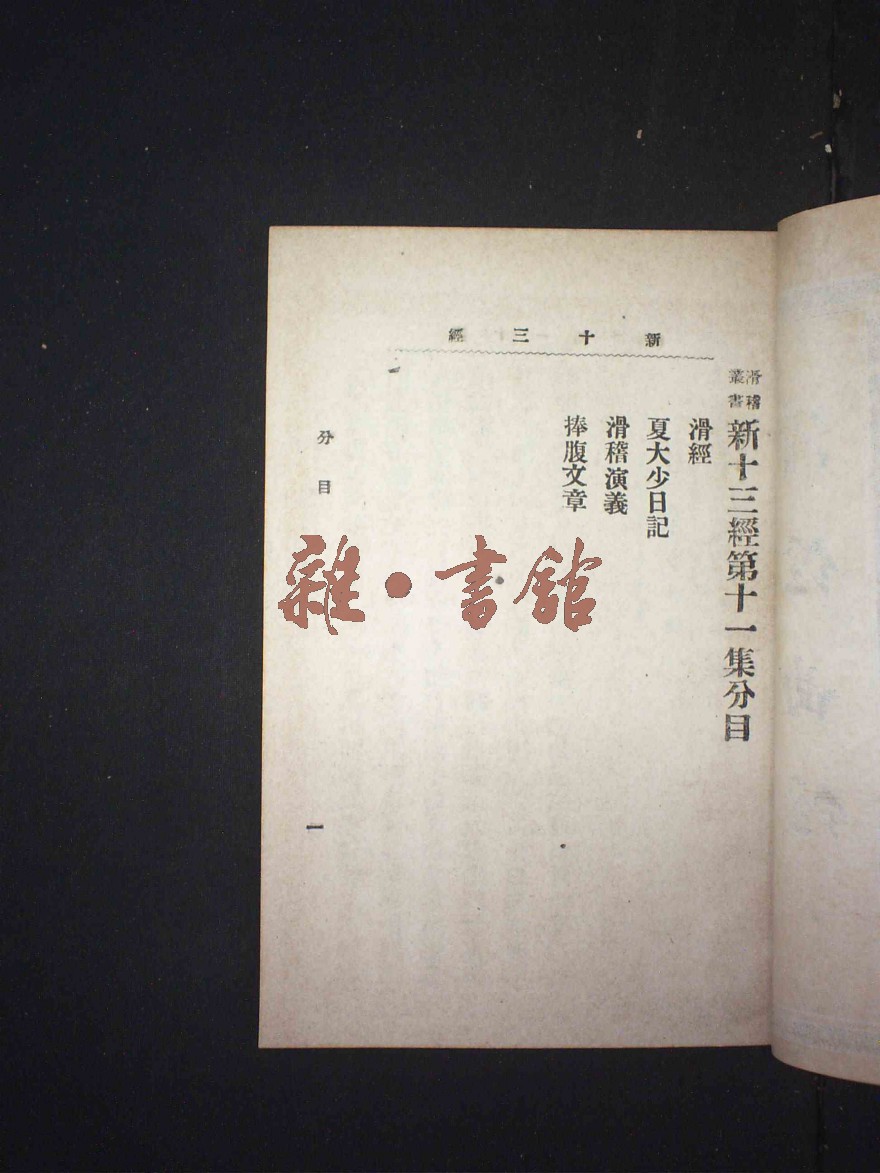 新十三經
滑稽叢書
新十三經第十一集分目
滑經
夏大少日記
滑稽演義
捧腹文章
分目
一
雜·書館